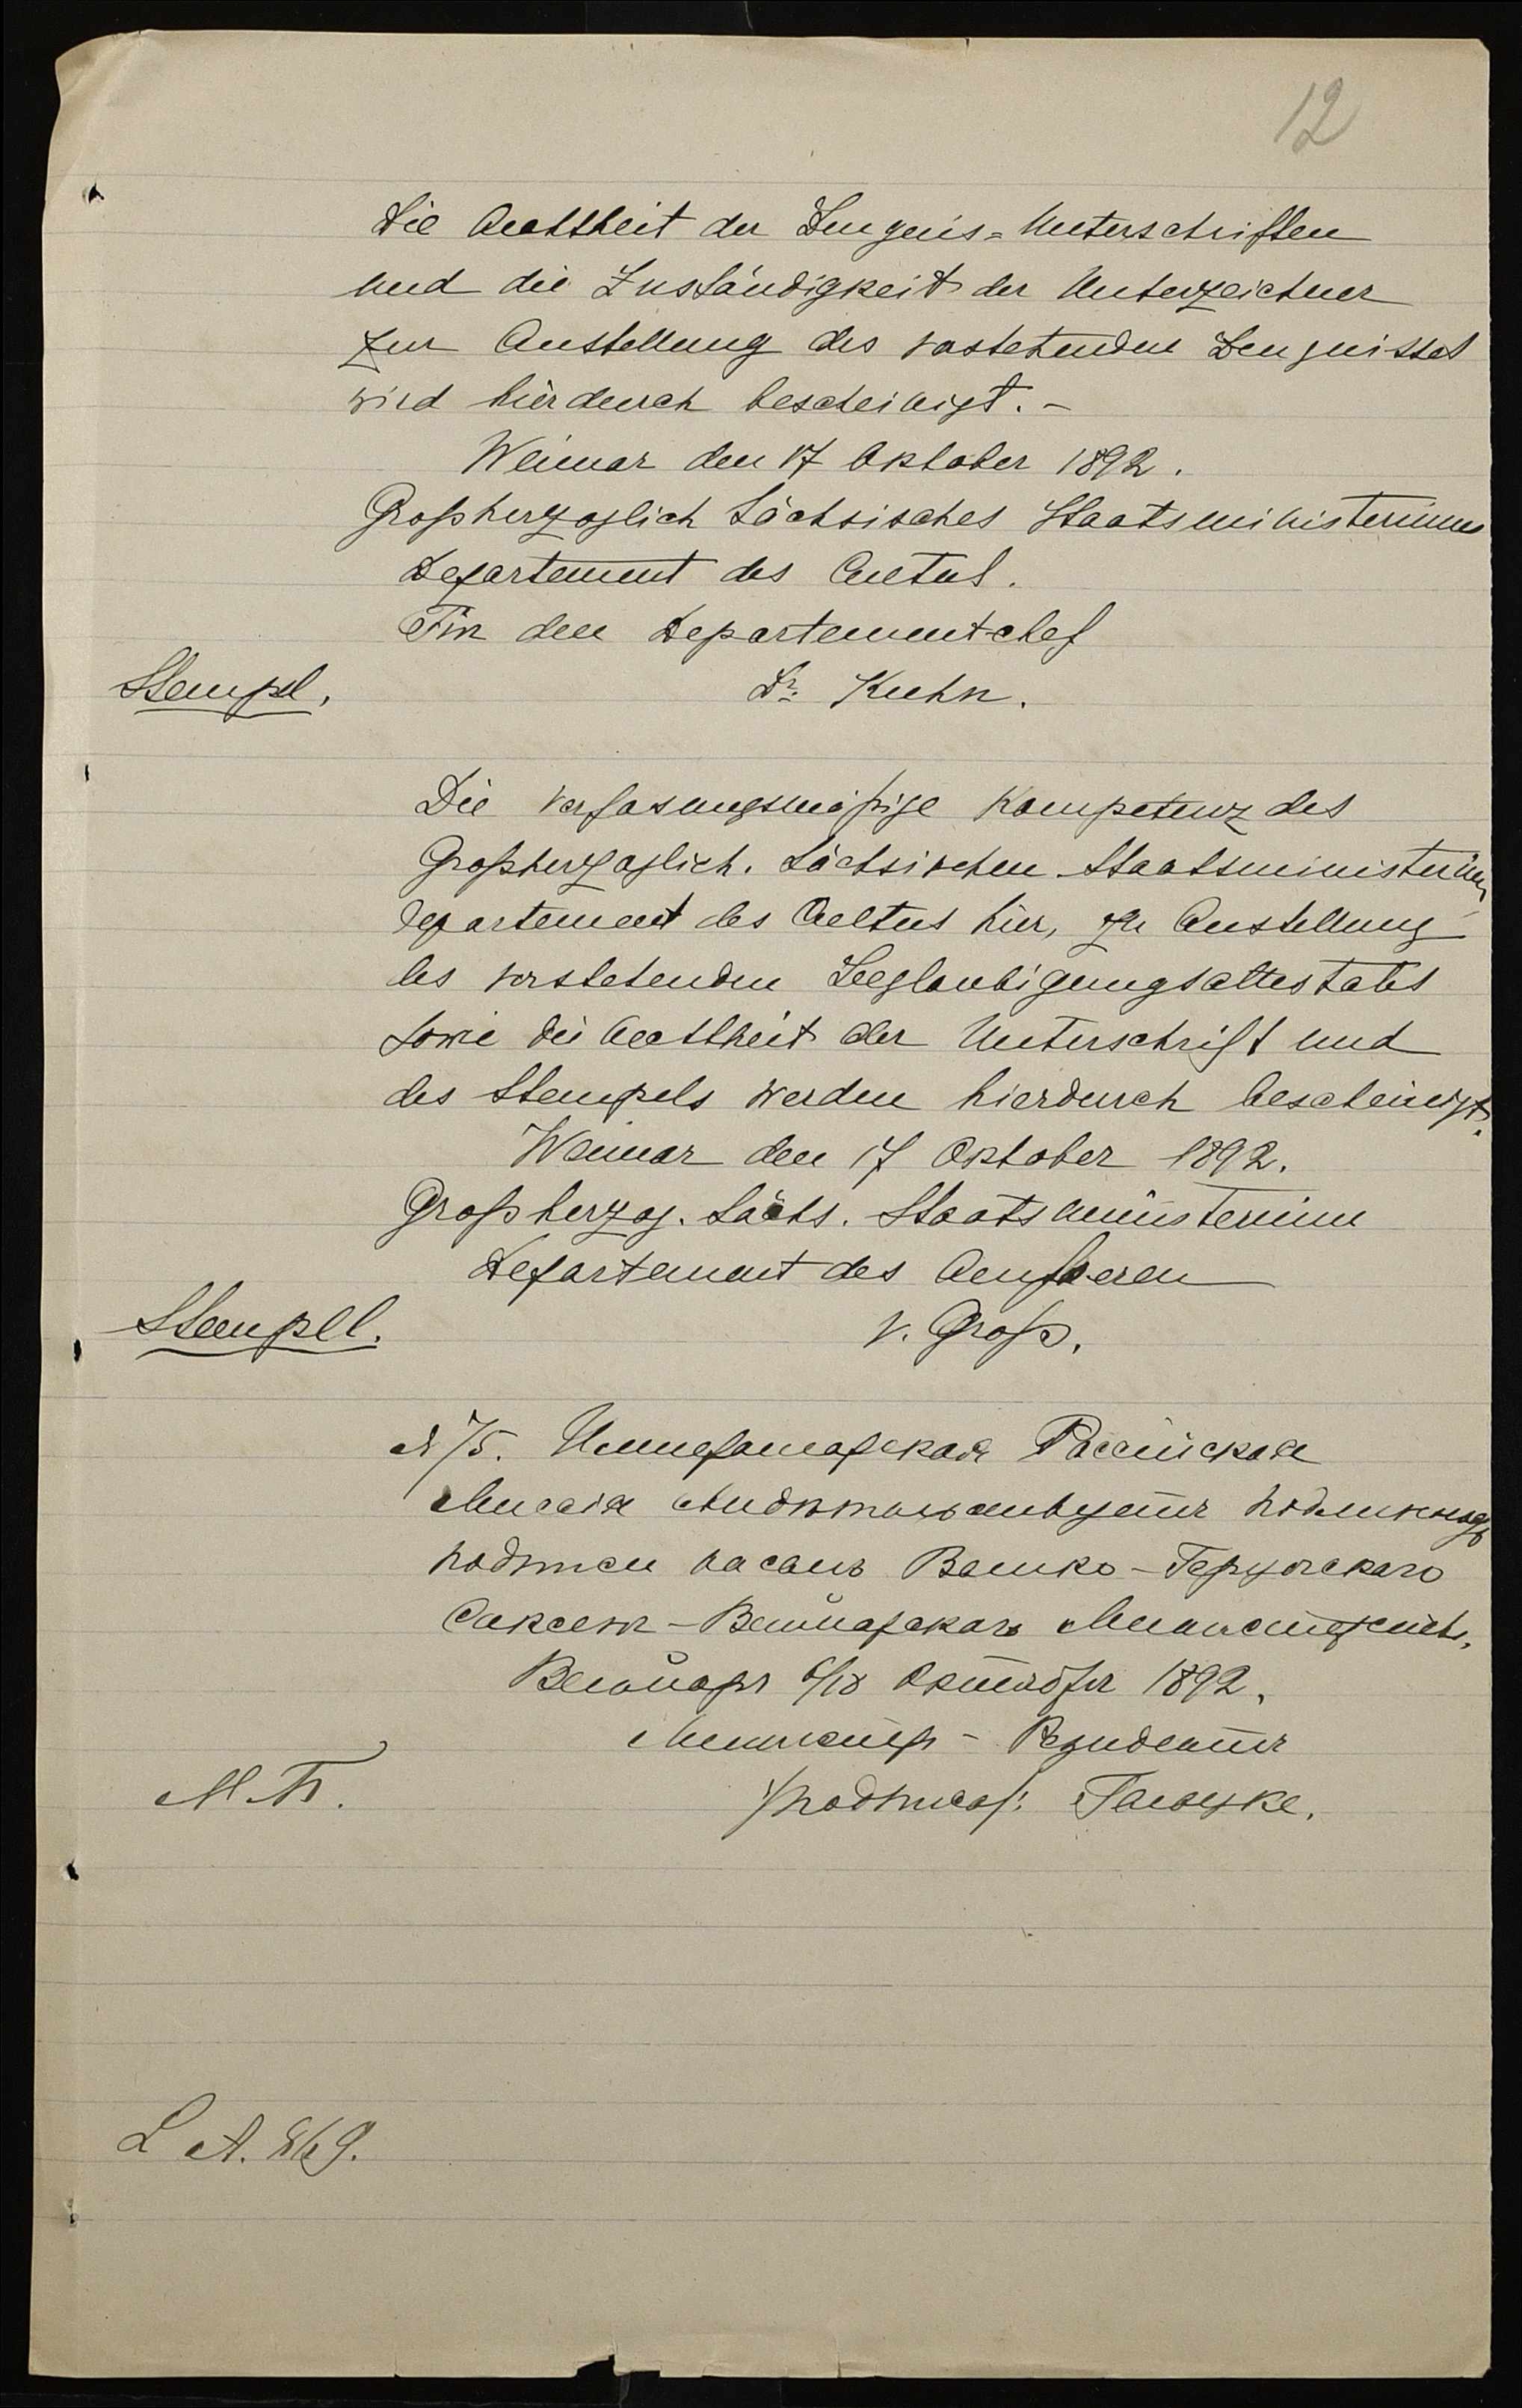 12
Die Aechtheit der Zeugnis=Unterschriften
und die Zuständigkeit der Unterzeichner
zur Ausstellung des vostehenden Zeugnisses
wird hierdurch bescheinigt. -
Weimar den 17 Oktober 1892.
Großherzoglich Sächsisches Staatsministerium
Departement des Cultus.
Für den Departementchef
Stempel.
Dr. Kuhn.
Die verfasungsmäßige Kompetenz des
Großherzoglich. Sächsischen Staatsministerium,
Departement des Cultus hier, zu Ausstellung
des vorstehenden Beglaubigungsattestates
sowie die Aechtheit der Unterschrift und
des Stempels werden hierdurch bescheinigt.
Weimar den 17 Oktober 1892.
Großherzog. Sächs. Staatsministerium
Departement des Aeußeren
Stempel.
v. Groß.
№ 75. Императорская Россійская
Миссія симъ подлинность
подписи Велико-Герцогскаго
Саксенъ-Веймарскаго Министерства.
Веймаръ 6/18 Октября 1892.
Министръ-Резидентъ
М.П.
/подписа/:
L A. 869.